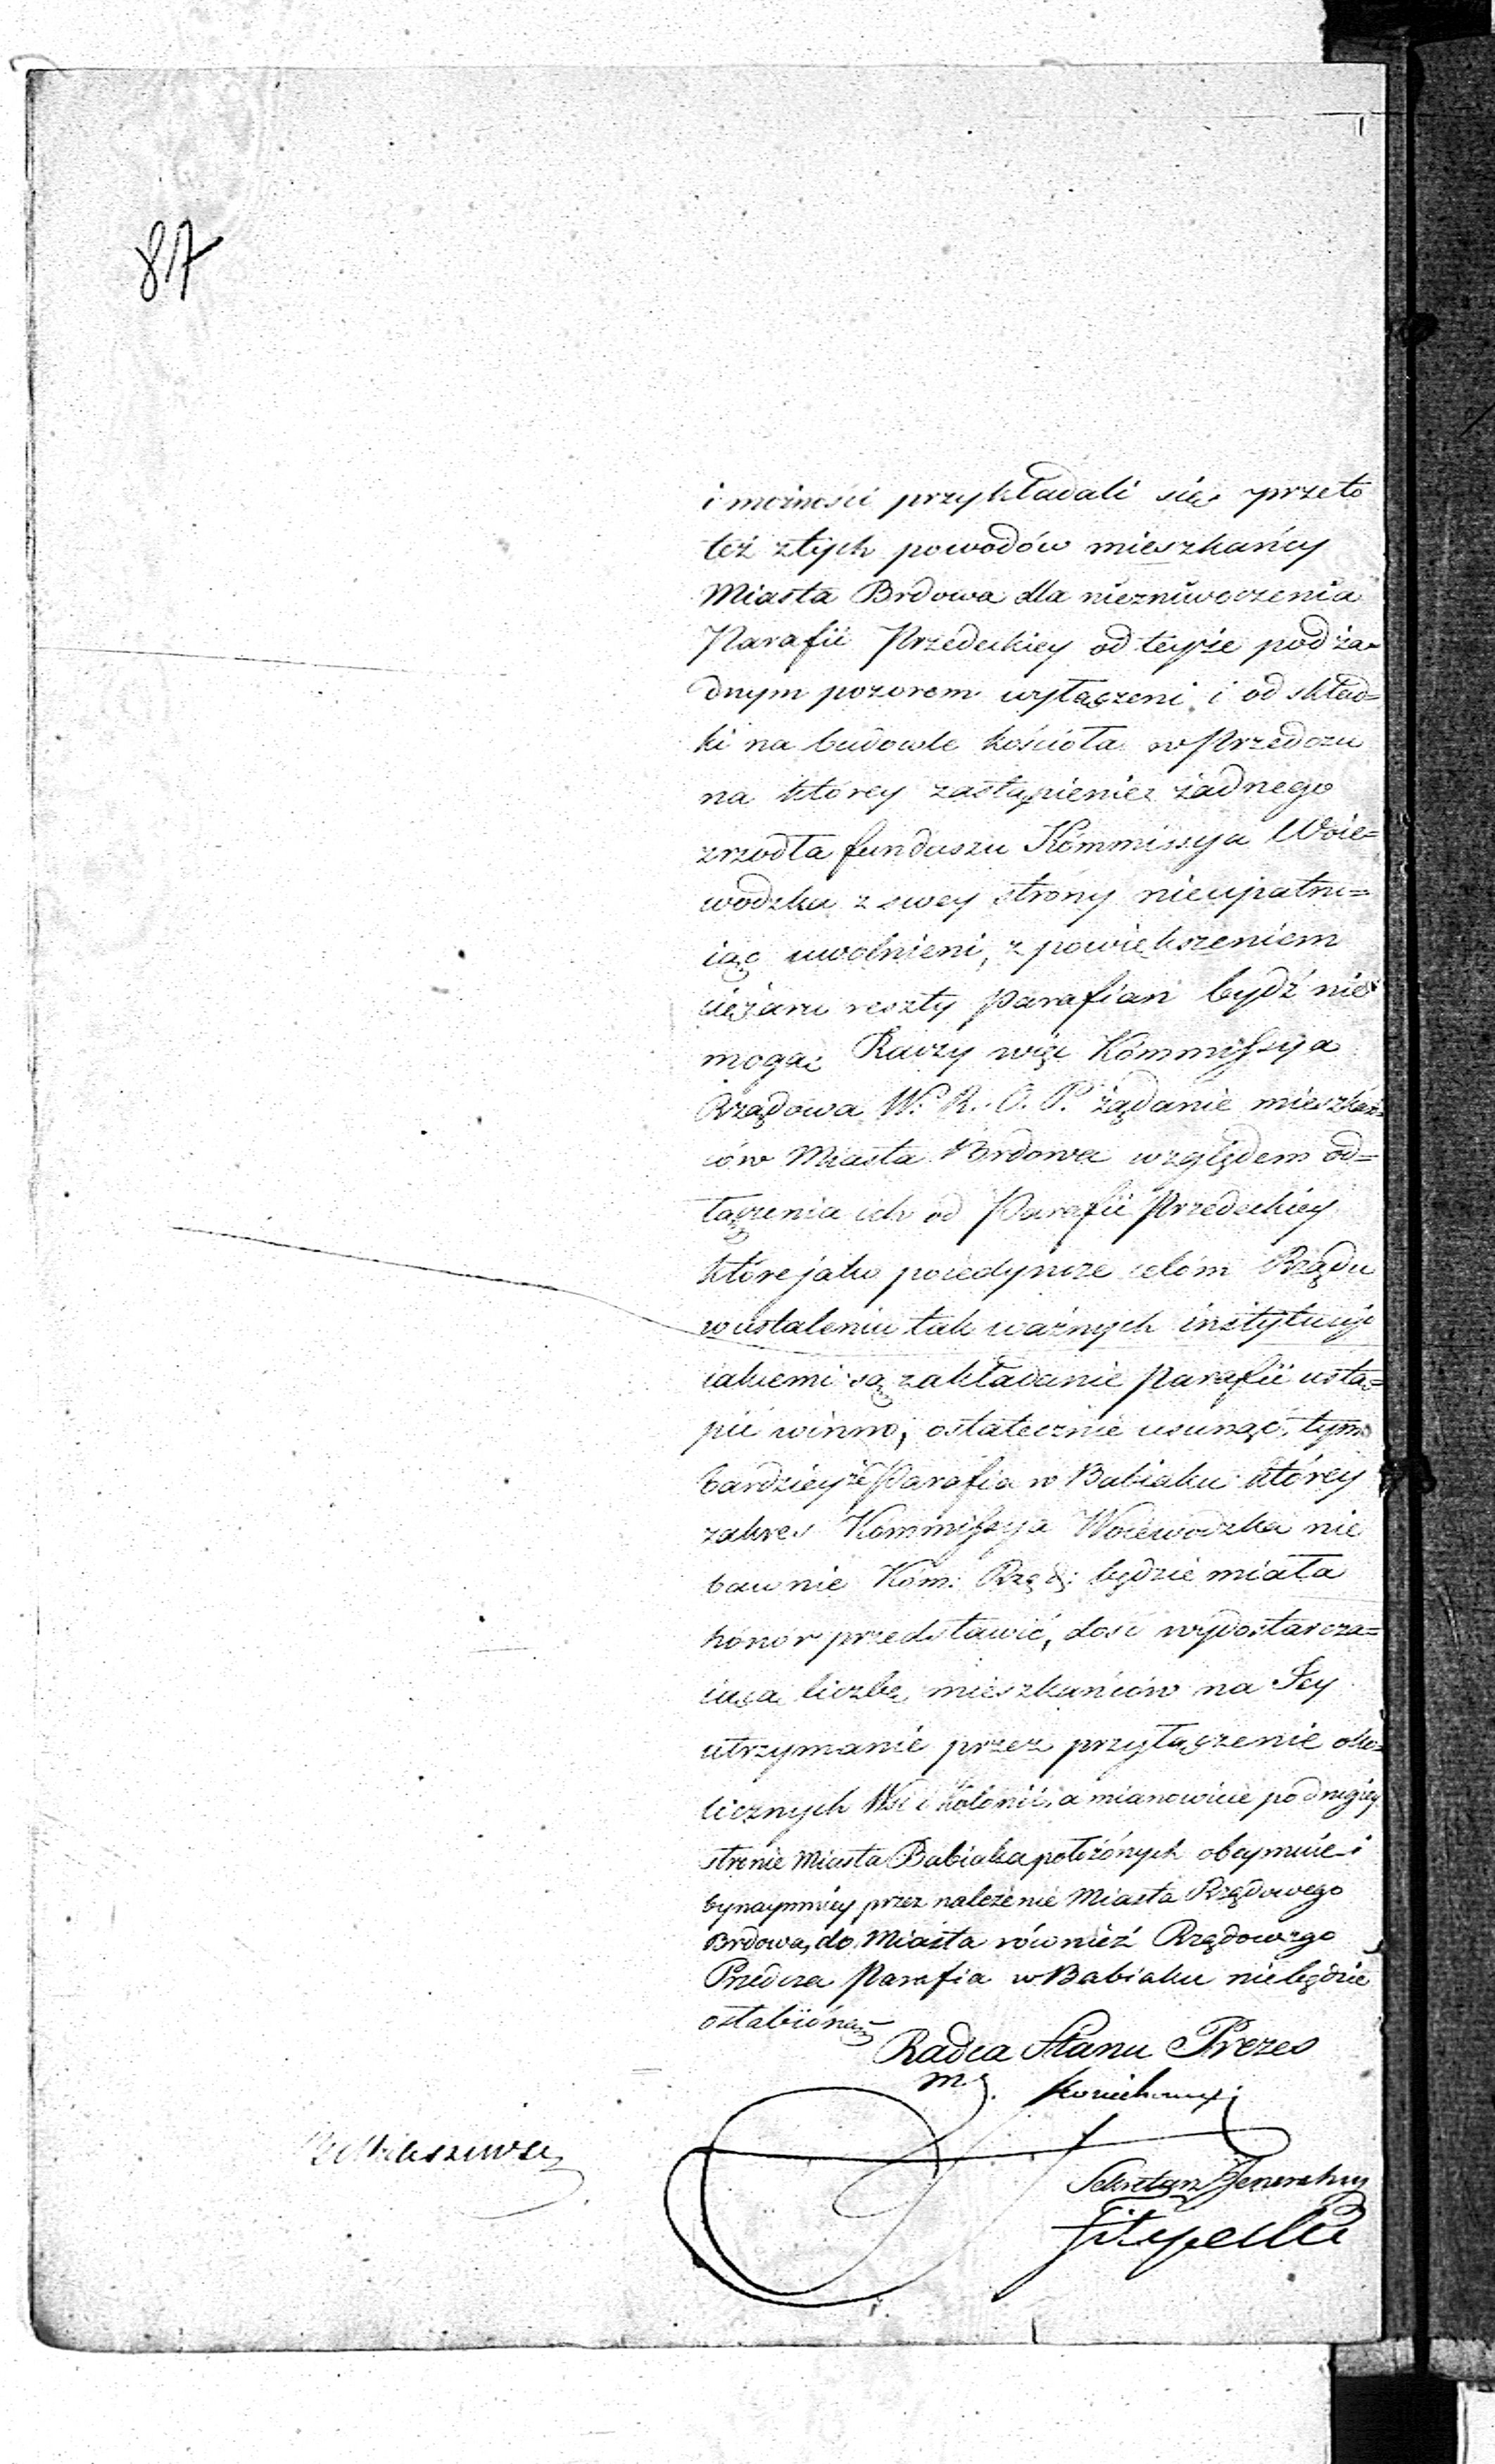 87
i możności przykładali się, przeto
też z tych powodów mieszkańcy
Miasta Brdowa dla niezniweczenia
Parafii Przedeckiey od teyże pod ża=
dnym pozorem wyłączeni i od skład=
ki na budowle kościoła w Przedczu
na którey zastąpienie żadnego
zrzodła funduszu Kommissya Woie=
wodzka z swey strony nieupatru=
iąc uwolnieni, z powiekszeniem
ciężaru reszty parafian bydź nie
mogą. Raczy więc Kommissya
Rządowa W. R. O. P. żądanie mieszkań=
ców Miasta Brdowa względem od=
łączenia ich od Parafii Przedeckiey
które jako poiedyncze celóm Rządu
w ustaleniu tak ważnych instytucyi
iakiemi są zakładanie Parafii ustą=
pić winno, ostatecznie usunąć, tym
bardziey że Parafia w Babiaku którey
zakres Kommissya Woiewodzka nie
bawnie Kom: Rząd: będzie miała
honór przedstawić, dość wydostarcza=
iącą liczbę mieszkańców na Jey
utrzymanie przez przyłączenie oko=
licznych Wsi i Kolonii, a mianowicie po drugiey
stronie Miasta Babiaka położónych obeymuie i
bynaymniey przez należenie Miasta Rządowego
Brdowa, do Miasta również Rządowego
Przedcza Parafia w Babiaku nie będzie
osłabióną
Radca Stanu Prezes
Sekretarz Jeneralny
Filipecki